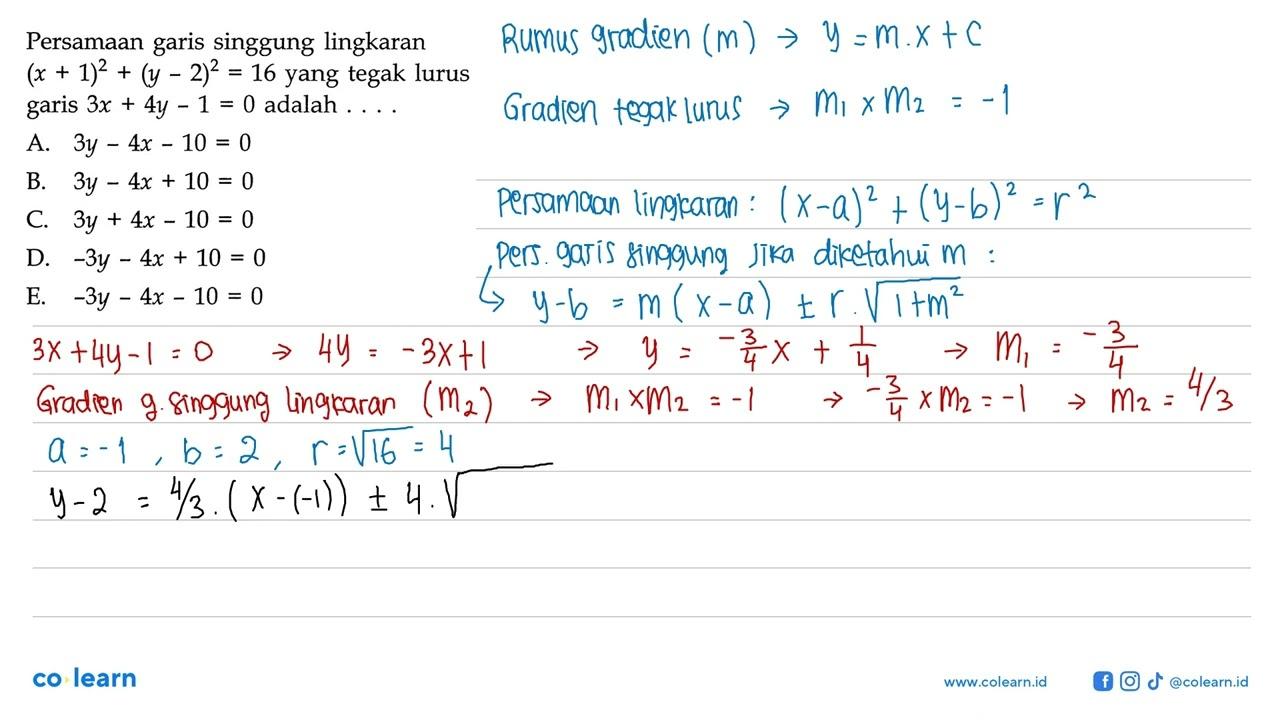 Persamaan garis singgung lingkaran
(x + 1)² + (y – 2)² = 16 yang tegak lurus
garis 3x + 4y – 1 = 0 adalah . . . .
A. 3y – 4x – 10 = 0
B. 3y – 4x + 10 = 0
C. 3y + 4x – 10 = 0
D. –3y – 4x + 10 = 0
E. –3y – 4x – 10 = 0
Rumus gradien (m) → y = m.x + c
Gradien tegak lurus → m₁ × m₂ = -1
Persamaan lingkaran : (x-a)² + (y-b)² = r²
Pers. garis singgung jika diketahui m :
↳ y-b = m(x-a) ± r.√(1+m²)
3x+4y-1 = 0 → 4y = -3x+1 → y = -3/4 x + 1/4 → m₁ = -3/4
Gradien g. singgung lingkaran (m₂) → m₁×m₂ = -1 → -3/4 × m₂ = -1 → m₂ = 4/3
a = -1 , b = 2 , r = √16 = 4
y-2 = 4/3 . (x-(-1)) ± 4.√
co learn
www.colearn.id @colearn.id